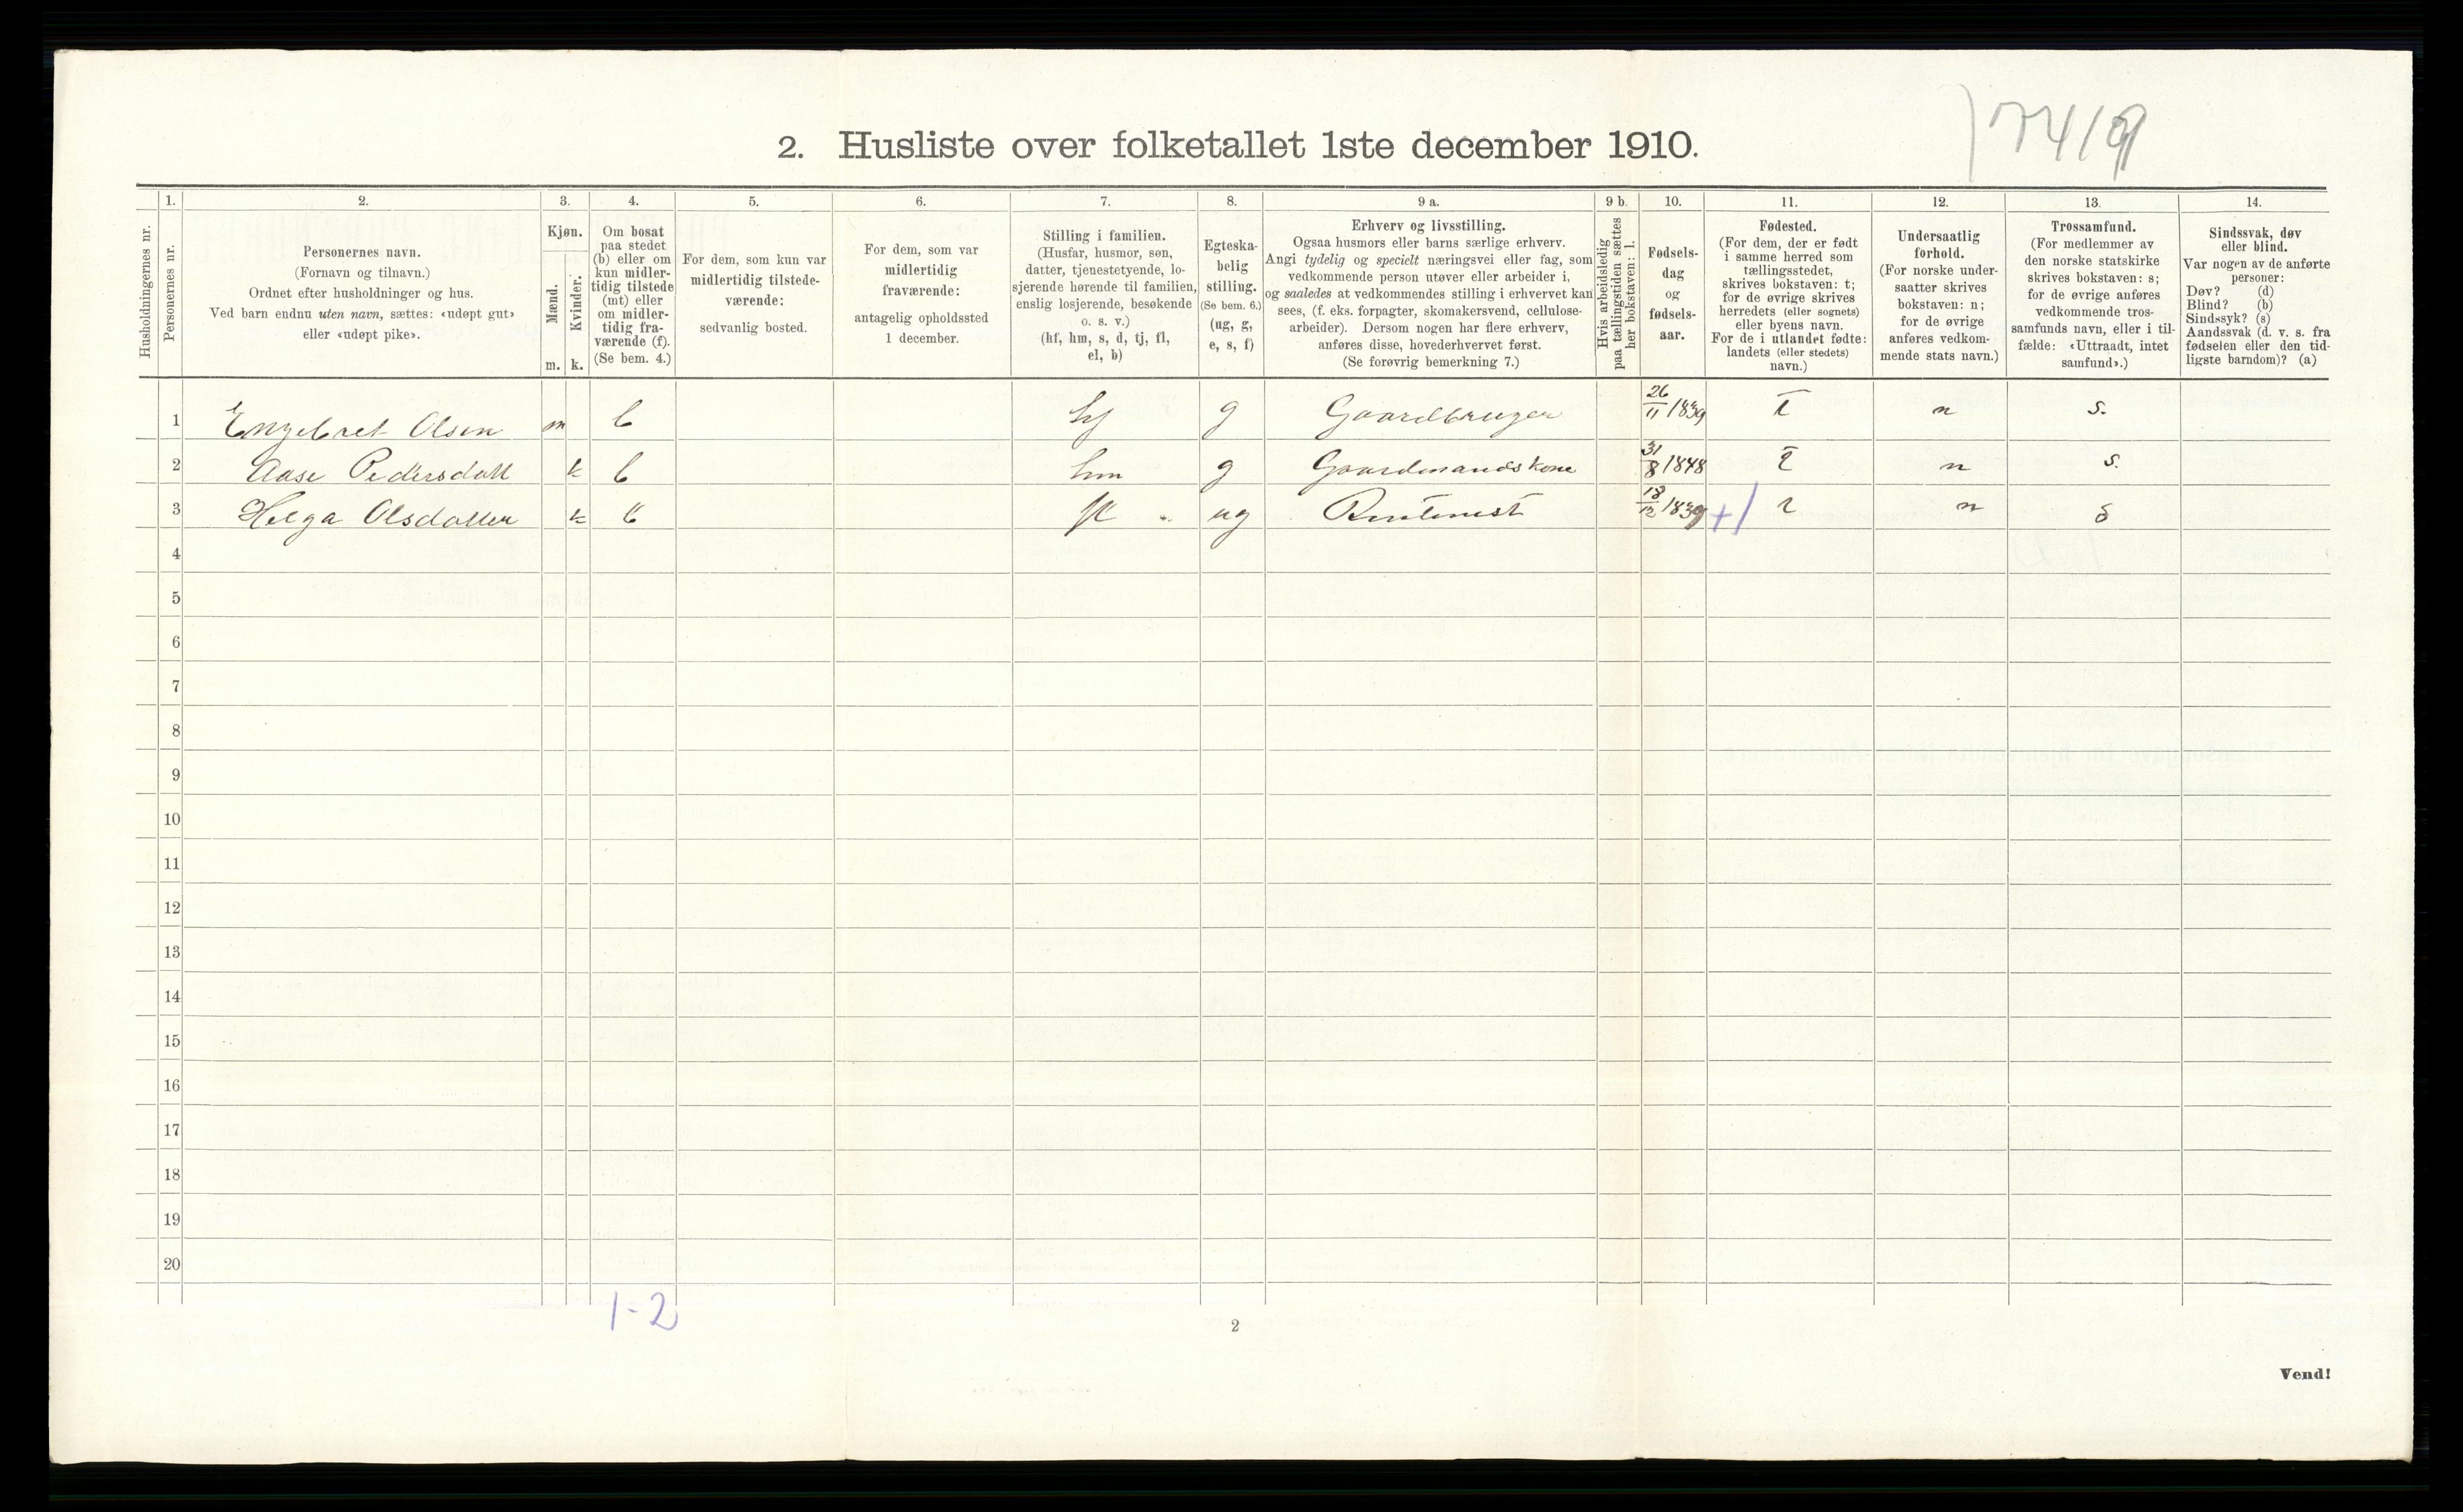 2. Husliste over folketallet 1ste december 1910.
Husholdningernes nr.
1.
Personernes nr.
2.
Personernes navn.
(Fornavn og tilnavn.)
Ordnet efter husholdninger og hus.
Ved barn endnu uten navn, sættes: «udøpt gut»
eller «udøpt pike».
3.
Kjøn.
Mænd.
Kvinder.
m. k.
4.
Om bosat
paa stedet
(b) eller om
kun midler-
tidig tilstede
(mt) eller
om midler-
tidig fra-
værende (f).
(Se bem. 4.)
5.
For dem, som kun var
midlertidig tilstede-
værende:
sedvanlig bosted.
6.
For dem, som var
midlertidig
fraværende:
antagelig opholdssted
1 december.
7.
Stilling i familien.
(Husfar, husmor, søn,
datter, tjenestetyende, lo-
sjerende hørende til familien,
enslig losjerende, besøkende
o. s. v.)
(hf, hm, s, d, tj, fl,
el, b)
8.
Egteska-
belig
stilling.
(Se bem. 6.)
(ug, g,
e, s, f)
9 a.
Erhverv og livsstilling.
Ogsaa husmors eller barns særlige erhverv.
Angi tydelig og specielt næringsvei eller fag, som
vedkommende person utøver eller arbeider i,
og saaledes at vedkommendes stilling i erhvervet kan
sees, (f. eks. forpagter, skomakersvend, cellulose-
arbeider). Dersom nogen har flere erhverv,
anføres disse, hovederhvervet først.
(Se forøvrig bemerkning 7.)
9 b.
Hvis arbeidsledig
paa tællingstiden sættes
her bokstaven: l.
10.
Fødsels-
dag
og
fødsels-
aar.
11.
Fødested.
(For dem, der er født
i samme herred som
tællingsstedet,
skrives bokstaven: t;
for de øvrige skrives
herredets (eller sognets)
eller byens navn.
For de i utlandet fødte:
landets (eller stedets)
navn.)
12.
Undersaatlig
forhold.
(For norske under-
saatter skrives
bokstaven: n;
for de øvrige
anføres vedkom-
mende stats navn.)
13.
Trossamfund.
(For medlemmer av
den norske statskirke
skrives bokstaven: s;
for de øvrige anføres
vedkommende tros-
samfunds navn, eller i til-
fælde: «Uttraadt, intet
samfund».)
14.
Sindssvak, døv
eller blind.
Var nogen av de anførte
personer:
Døv? (d)
Blind? (b)
Sindssyk? (s)
Aandssvak (d. v. s. fra
fødselen eller den tid-
ligste barndom)? (a)
1 Engebret Olsen m b hf g Gaardbruger 26/11 1839 t n s.
2 Aase Pedersdatt k b hm g Gaardmandskone 31/8 1848 t n s.
3 Helga Olsdatter k b fl ug Rentenist 18/12 1839 t n s
4
5
6
7
8
9
10
11
12
13
14
15
16
17
18
19
20
1-2
2
Vend!